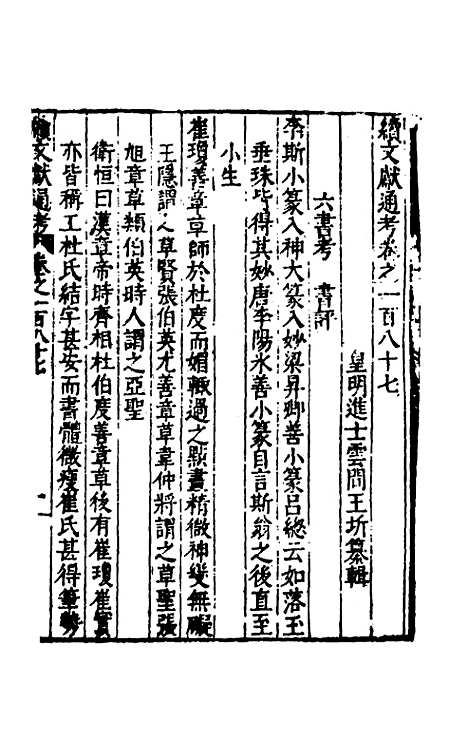 續文獻通考卷之一百八十七
皇明進士雲間王圻纂輯
六書考 書評
李斯小篆入神大篆入妙梁昇卿善小篆呂緫云如落玉
垂珠皆得其妙唐李陽氷善小篆自言斯翁之後直至
小生
崔瑗善章草師於杜度而媚輙過之㸃畫精微神變無礙
王隱謂之草賢張伯英尤善章草韋仲將謂之草聖張
旭章草類伯英時人謂之亞聖
衛恒曰漢章帝時齊相杜伯度善章草後有崔瑗崔寔
亦皆稱工杜氏結字甚安而書體微瘦崔氏甚得筆勢
續文獻通考 卷之一百八十七 一